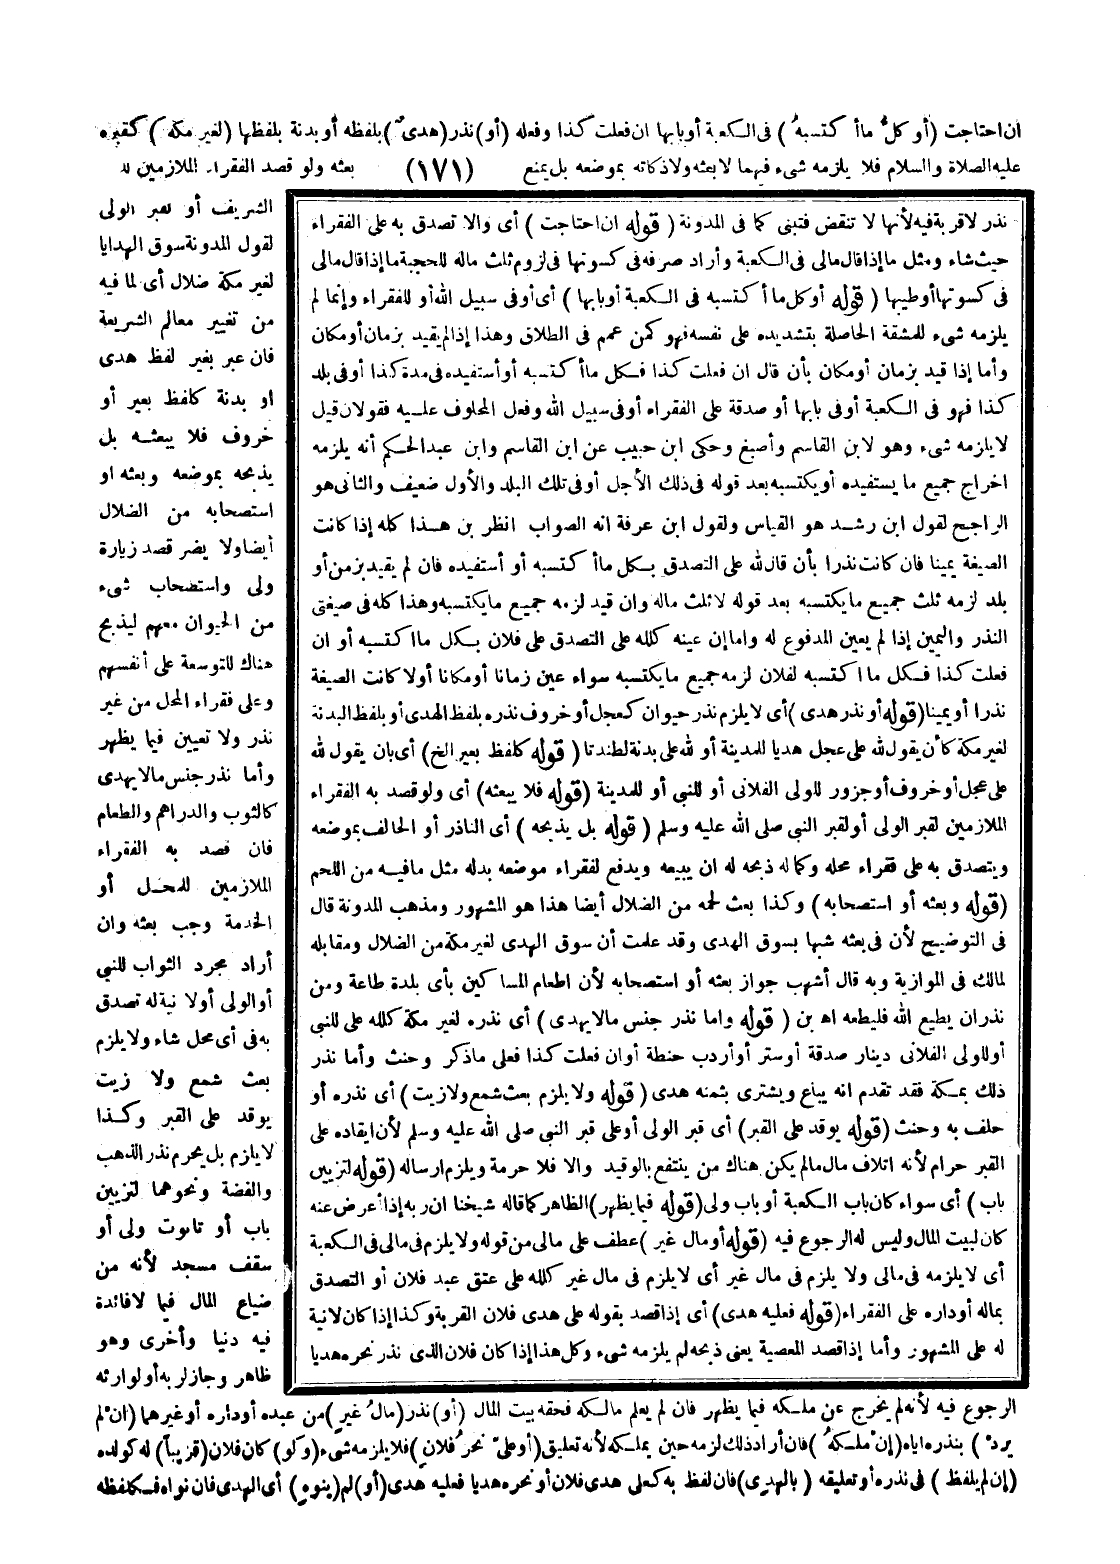 ان احتاجت (أو كل ما أكتسبه) في الكعبة أو بابها ان فعلت كذا وفعله (أو) نذر (هدى) بلفظه أو بدنة بلفظها (لغير مكة) كقبره
عليه الصلاة والسلام فلا يلزمه شيء فيهما لا بعثه ولا ذكاته بموضعه بل يمنع (١٧١) بعثه ولو قصد الفقراء الملازمين له
الشريف أو لقبر الولى
لقول المدونة سوق الهدايا
لغير مكة ضلال أى لما فيه
من تغيير معالم الشريعة
فان عبر بغير لفظ هدى
او بدنة كلفظ بعير أو
خروف فلا يبعثه بل
يذبحه بموضعه وبعثه او
استصحابه من الضلال
أيضا ولا يضر قصد زيارة
ولى واستصحاب شىء
من الحيوان معهم ليذبح
هناك للتوسعة على أنفسهم
وعلى فقراء المحل من غير
نذر ولا تعيين فيما يظهر
وأما نذر جنس مالا يهدى
كالثوب والدراهم والطعام
فان قصد به الفقراء
الملازمين للمحل أو
الخدمة وجب بعثه وان
أراد مجرد الثواب للنبي
أو الولى أولا نية له تصدق
به فى أى محل شاء ولا يلزم
بعث شمع ولا زيت
يوقد على القبر وكذا
لا يلزم بل يحرم نذر الذهب
والفضة ونحوهما لتزيين
باب أو تابوت ولى أو
سقف مسجد لأنه من
ضياع المال فيما لا فائدة
فيه دنيا وأخرى وهو
ظاهر وجاز لربه أو لوارثه
نذر لا قربة فيه لأنها لا تنقض فتبنى كما فى المدونة (قوله ان احتاجت) أى والا تصدق به على الفقراء
حيث شاء ومثل ما إذا قال مالى فى الكعبة وأراد صرفه فى كسوتها فى لزوم ثلث ماله للحجبة ما إذا قال مالى
فى كسوتها أو طيبها (قوله أو كل ما أكتسبه فى الكعبة أو بابها) أى أو فى سبيل الله أو للفقراء وإنما لم
يلزمه شىء للمشقة الحاصلة بتشديده على نفسه فهو كمن عمم فى الطلاق وهذا إذا لم يقيد بزمان أو مكان
وأما إذا قيد بزمان أو مكان بأن قال ان فعلت كذا فكل ما أكتسبه أو أستفيده فى مدة كذا أو فى بلد
كذا فهو فى الكعبة أو فى بابها أو صدقة على الفقراء أو فى سبيل الله وفعل المحلوف عليه فقولان قيل
لا يلزمه شىء وهو لابن القاسم وأصبغ وحكى ابن حبيب عن ابن القاسم وابن عبد الحكم أنه يلزمه
اخراج جميع ما يستفيده أو يكتسبه بعد قوله فى ذلك الأجل أو فى تلك البلد والأول ضعيف والثانى هو
الراجح لقول ابن رشد هو القياس ولقول ابن عرفة انه الصواب انظر بن هذا كله إذا كانت
الصيغة يمينا فان كانت نذرا بأن قال لله على التصدق بكل ما أكتسبه أو أستفيده فان لم يقيد بزمن أو
بلد لزمه ثلث جميع ما يكتسبه بعد قوله لا ثلث ماله وان قيد لزمه جميع ما يكتسبه وهذا كله فى صيغتى
النذر واليمين إذا لم يعين المدفوع له واما إن عينه كلله على التصدق على فلان بكل ما اكتسبه أو ان
فعلت كذا فكل ما اكتسبه لفلان لزمه جميع ما يكتسبه سواء عين زمانا أو مكانا أولا كانت الصيغة
نذرا أو يمينا (قوله أو نذر هدى) أى لا يلزم نذر حيوان كعجل أو خروف نذره بلفظ الهدى أو بلفظ البدنة
لغير مكة كأن يقول لله على عجل هديا للمدينة أو لله على بدنة لطندتا (قوله كلفظ بعير الخ) أى بان يقول لله
على عجل أو خروف أو جزور للولى الفلانى أو للنبي أو للمدينة (قوله فلا يبعثه) أى ولو قصد به الفقراء
الملازمين لقبر الولى أو لقبر النبي صلى الله عليه وسلم (قوله بل يذبحه) أى الناذر أو الحالف بموضعه
ويتصدق به على فقراء محله وكما له ذبحه له ان يبيعه ويدفع لفقراء موضعه بدله مثل مافيه من اللحم
(قوله وبعثه أو استصحابه) وكذا بعث لحمه من الضلال أيضا هذا هو المشهور ومذهب المدونة قال
فى التوضيح لأن فى بعثه شبها بسوق الهدى وقد علمت أن سوق الهدى لغير مكة من الضلال ومقابله
لمالك فى الموازية وبه قال أشهب جواز بعثه أو استصحابه لأن اطعام المساكين بأى بلدة طاعة ومن
نذر ان يطيع الله فليطعه اه بن (قوله واما نذر جنس مالا يهدى) أى نذره لغير مكة كلله على للنبي
أو للولى الفلانى دينار صدقة أو ستر أو أردب حنطة أو ان فعلت كذا فعلى ماذكر وحنث وأما نذر
ذلك بمكة فقد تقدم انه يباع ويشترى بثمنه هدى (قوله ولا يلزم بعث شمع ولا زيت) أى نذره أو
حلف به وحنث (قوله يوقد على القبر) أى قبر الولى أو على قبر النبي صلى الله عليه وسلم لأن ايقاده على
القبر حرام لأنه اتلاف مال مالم يكن هناك من ينتفع بالوقيد والا فلا حرمة ويلزم ارساله (قوله لتزيين
باب) أى سواء كان باب الكعبة أو باب ولى (قوله فيما يظهر) الظاهر كما قاله شيخنا ان ربه إذا أعرض عنه
كان لبيت المال وليس له الرجوع فيه (قوله أو مال غير) عطف على مالى من قوله ولا يلزم فى مالى فى الكعبة
أى لا يلزمه فى مالى ولا يلزم فى مال غير أى لا يلزم فى مال غير كلله على عتق عبد فلان أو التصدق
بماله أو داره على الفقراء (قوله فعليه هدى) أى إذا قصد بقوله على هدى فلان القربة وكذا إذا كان لانية
له على المشهور وأما إذا قصد المعصية يعنى ذبحه لم يلزمه شىء وكل هذا إذا كان فلان الذى نذر نحره هديا
الرجوع فيه لأنه لم يخرج عن ملكه فيما يظهر فان لم يعلم مالكه فحقه بيت المال (أو) نذر (مال غير) من عبده أو داره أو غيرهما (ان لم
يرد) بنذره اياه (إن ملكه) فان أراد ذلك لزمه حين يملكه لأنه تعليق (أو على نحر فلان) فلا يلزمه شىء (ولو) كان فلان (قريبا) له كولده
(إن لم يلفظ) فى نذره أو تعليقه (بالهدى) فان لفظ به كعلى هدى فلان أو نحره هديا فعليه هدى (أو) لم (ينوه) أى الهدى فان نواه فكلفظه